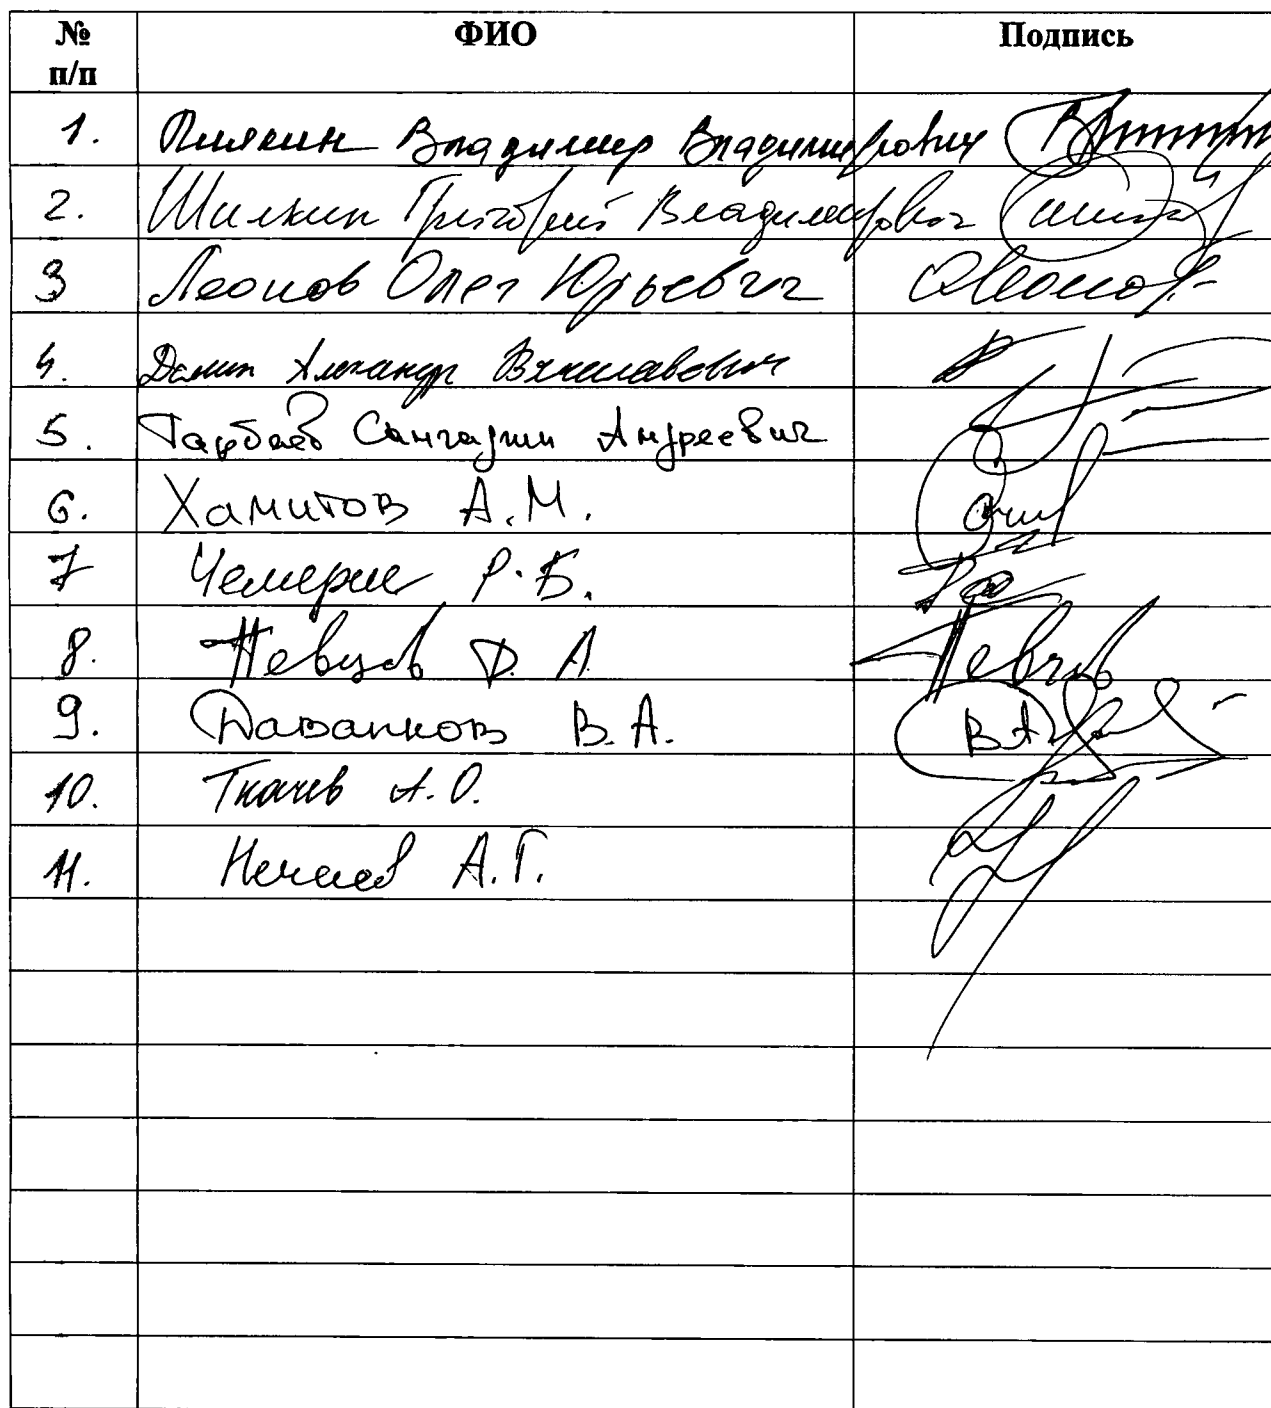 № п/п ФИО Подпись
1. Пилкин Владимир Владимирович
2. Шилкин Григорий Владимирович
3 Леонов Олег Юрьевич Леонов
4. Демин Александр Вячеславович
5. Тарбаев Сангаджи Андреевич
6. Хамитов А.М.
7 Чемерис Р.Б.
8. Певцов Д.А. Певцов
9. Даванков В.А.
10. Ткачев А.О.
11. Нечаев А.Г.